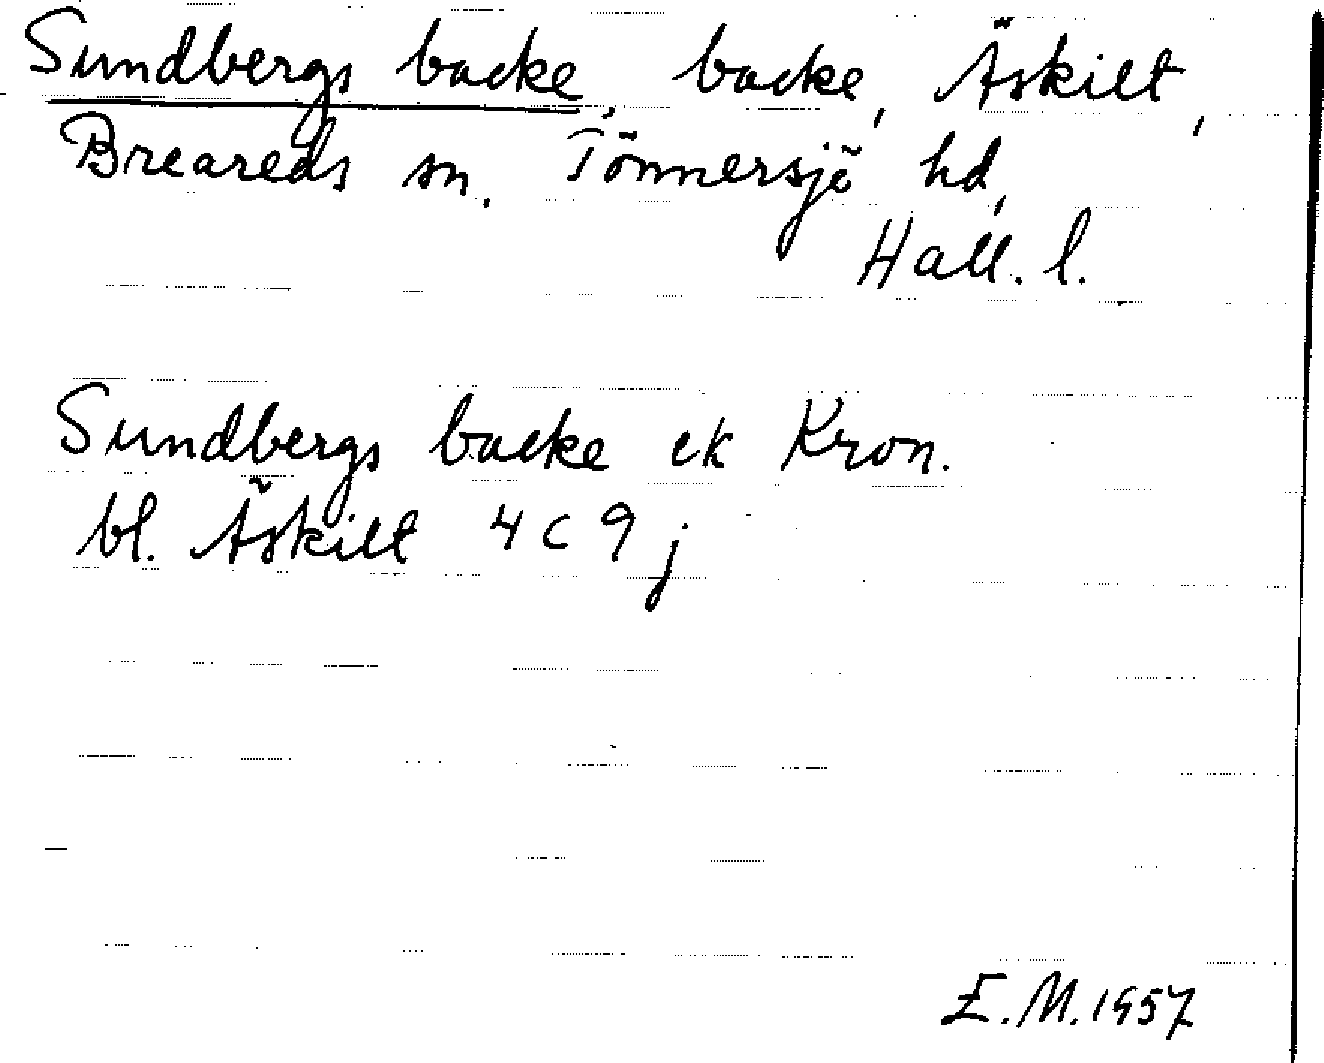 Sundbergs backe, backe, Äskilt,
Breareds sn. Tönnersjö hd,
Hall. l.
Sundbergs backe ek Kron.
bl. Äskilt 4 C 9 j
E.M. 1957